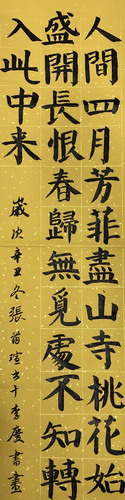 人間四月芳菲盡山寺桃花始
盛開長恨春歸無覓處不知轉
入此中来
歲次辛丑冬張瑄书于李慶書畫